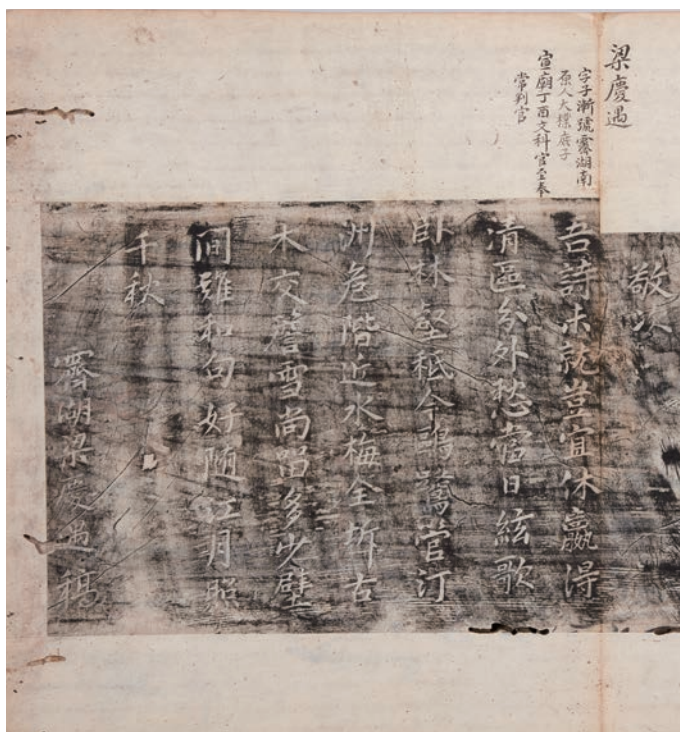 梁慶遇
字子漸號霽湖南
原人大樸庶子
宣廟丁酉文科官至奉
常判官
敬次
吾詩未就豈宜休贏得
清區分外愁當日絃歌
臥林壑秪今鷗鷺管汀
洲危階近水梅全坼古
木交簷雪尚留多少壁
間難和句好隨江月照
千秋
霽湖梁慶遇稿